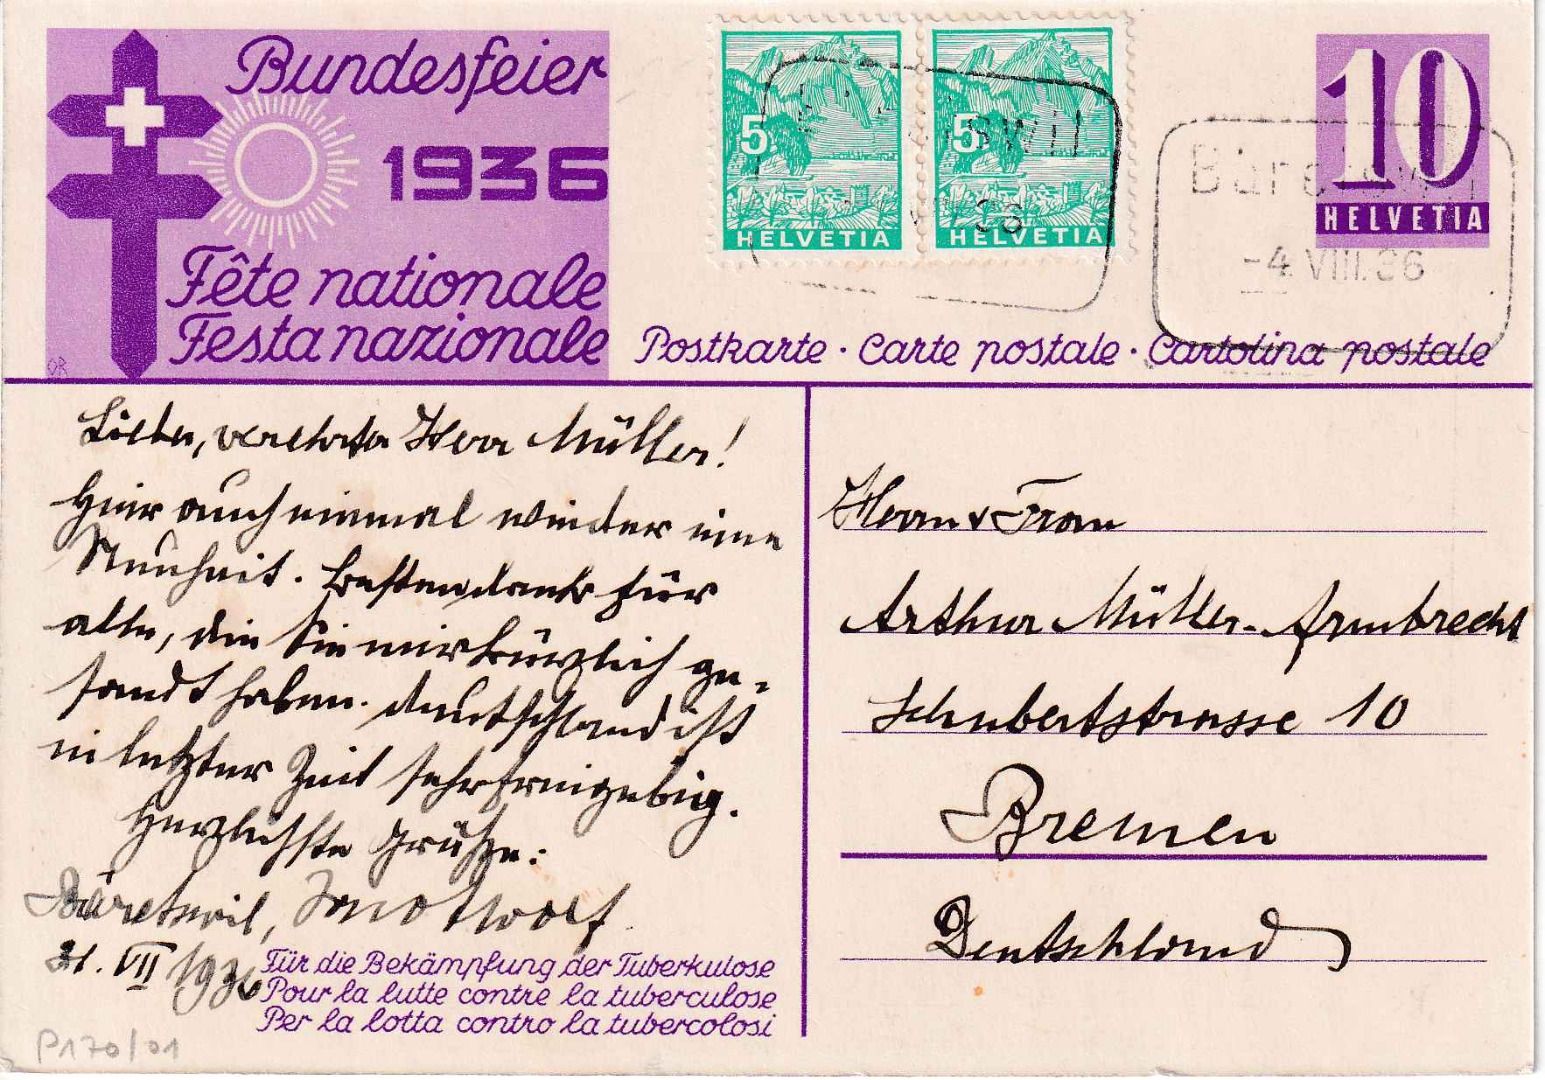 Bundesfeier
1936
Fête nationale
Festa nazionale
OR
5
HELVETIA
5
HELVETIA
10
HELVETIA
swil
Bäretswil
-4.VIII.36
Postkarte · Carte postale · Cartolina postale
Lieber, verehrter Herr Müller!
Hier auch einmal wieder eine
Neuheit. Besten dank für
alle, die Sie mir kürzlich ge-
sandt haben. Deutschland ist
in letzter Zeit sehr freigebig.
Herzlichste Grüße:
Bäretswil,
31. VII 1936
Herrn & Frau
Arthur Müller-Armbrecht
Schubertstrasse 10
Bremen
Deutschland
Für die Bekämpfung der Tuberkulose
Pour la lutte contre la tuberculose
Per la lotta contro la tubercolosi
P170/01